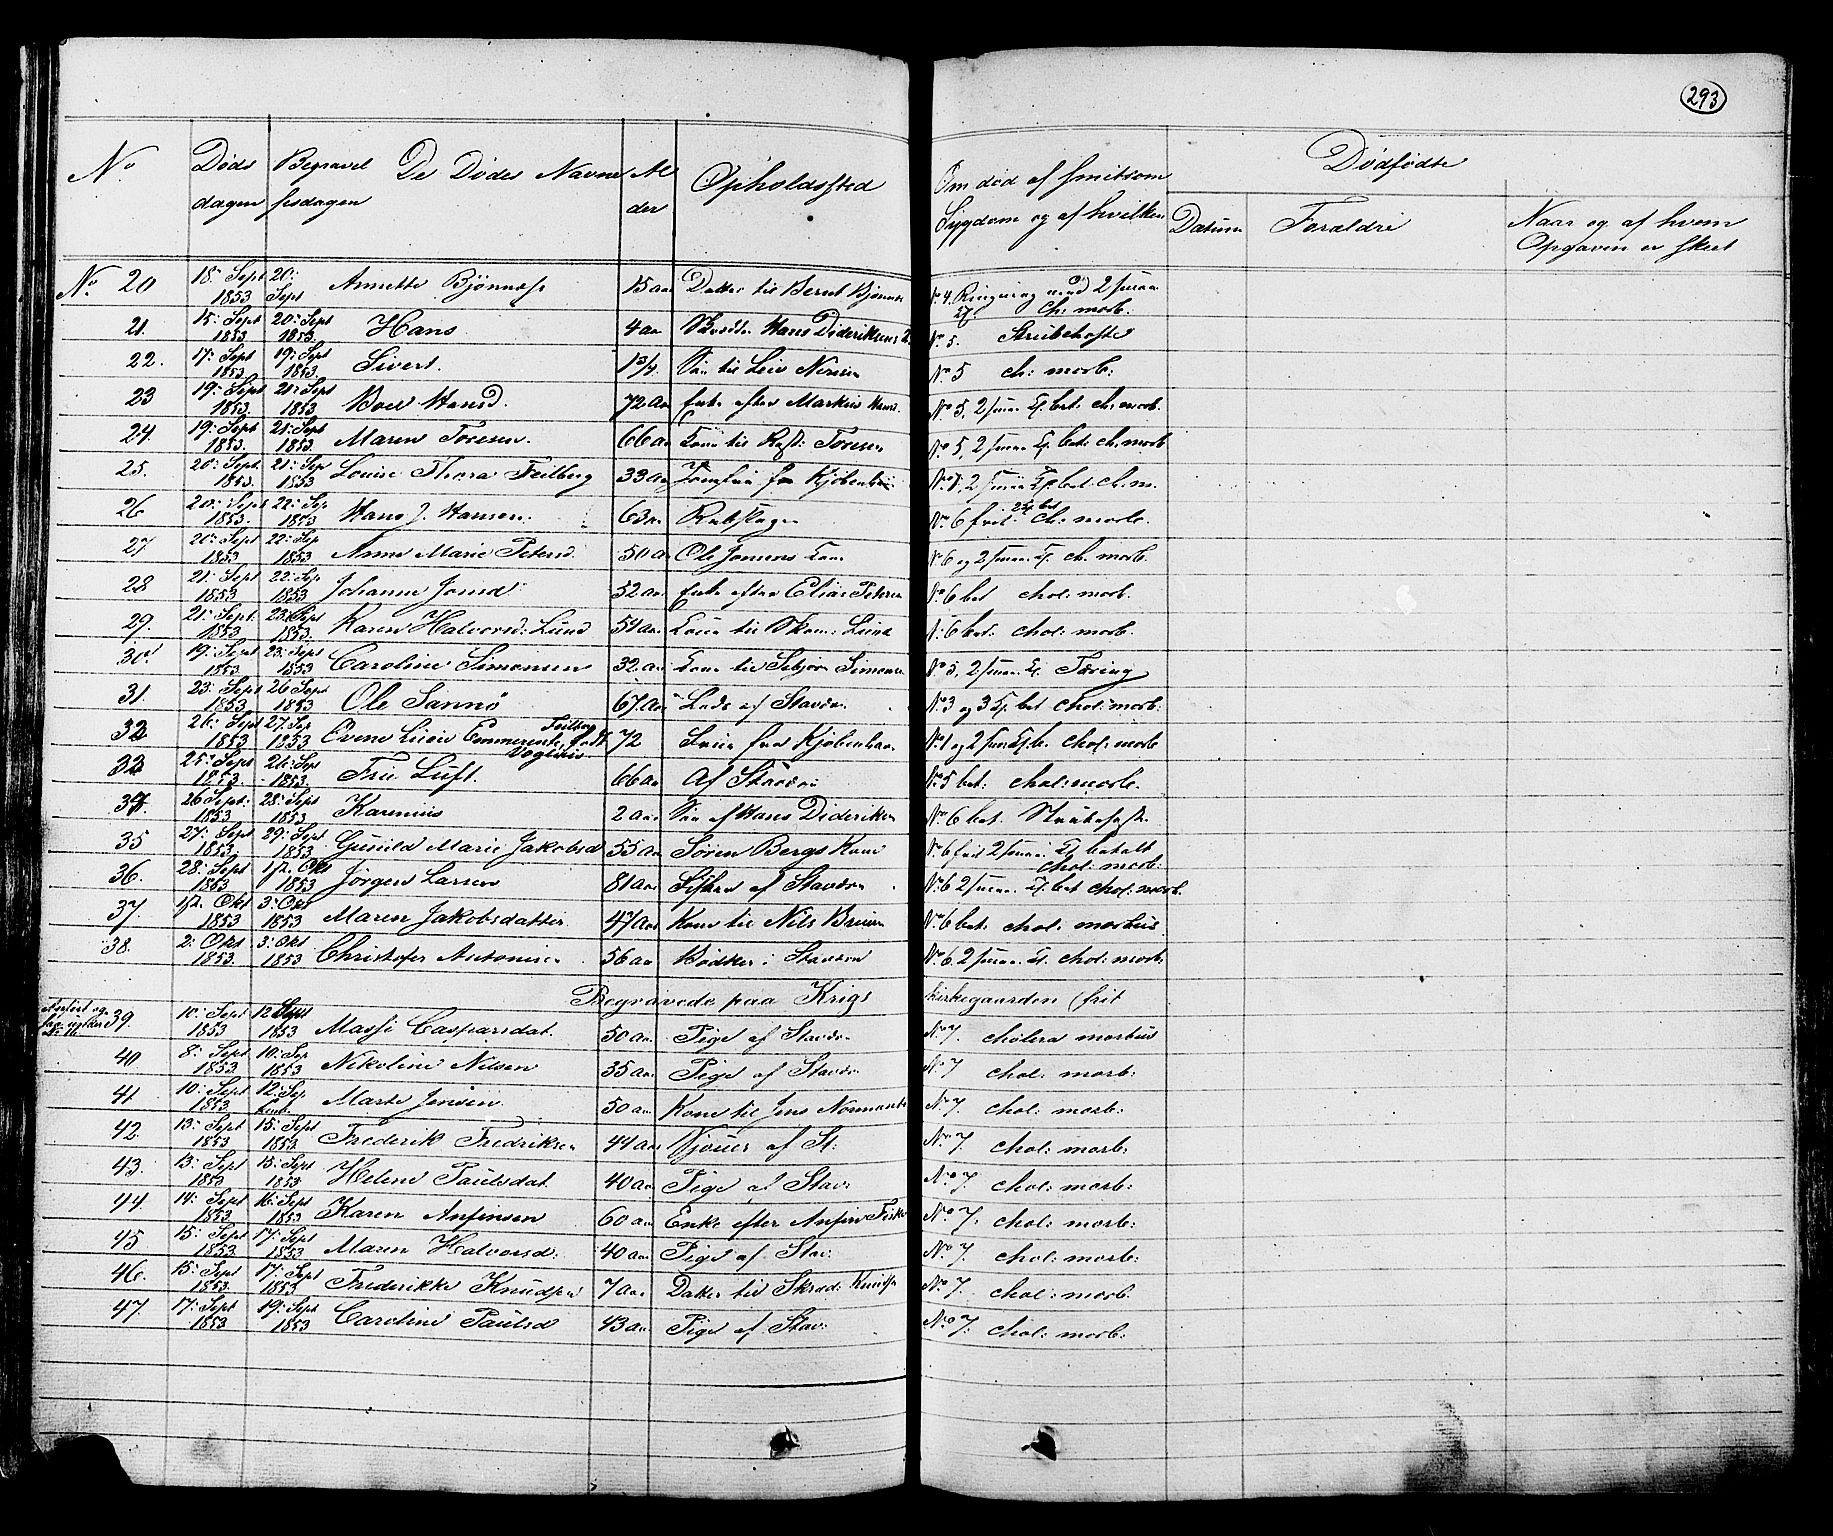 293
No Døds dagen Begravel sesdagen De Dødes Navne Al der Opholdssted Om død af smitsom Sygdom og af hvilken Dødfødte
Datum Forældre Naar og af hvem Opgaven er skeet
No 20 18: Sept 1853 20: Sept Annette Bjønnes 15 Aar Datter til Bernt Bjønnes No 4. Ringning med 2 ch: morb.
21. 15: Sept 1853 20: Sept 1853. Hans 4 aar Hans Dideriksens No 5. Strubehoste
22. 17: Sept 1853 19: Sept 1853 Sivert. 1 3/4. Søn til No 5 ch: morb:
23 19: Sept 1853. 21: Sept 1853 Hansd. 72 Aar Enke efter Markus Hans No 5, 2 bet. ch: morb.
24. 19: Sept 1853. 21: Sept 1853. Maren Toresen. 66 aar Kone til Toresen No 5, 2 bet: ch: morb
25. 20: Sept. 1853. 21: Sep 1853 Louise Thora Feilberg 33 Aar Jomfru fra Kjøbenhavn 2 bet: ch: m.
26 20: Sept 1853. 22: Sep 1853 Hans J. Hansen: 63 Rebslager No 6 frit. ch: morb.
27 20: Sept 1853 22: Sep 1853 Anne Marie Petersd. 50 Aar Ole Jensens Kone No 6 og 2 ch. morb.
28 21: Sept 1853 22: Sep 1853 Johanne Jensd: 52 aar Enke efter Elias Petersen No 6 bet chol: morb.
29. 21: Sept: 1853 23: Sept 1853. Karen Halvorsd: Lund 54 aar Kone til Lund No 6 bet: chol: morb.
30. 19: Sept 1853 23: Sept 1853 Caroline Simonsen 32. aar Kone til Simonsen No 5, 2 Tæring
31. 23: Sept 1853 26 Sept 1853 Ole Sannø 67 Aar Lods af Stavern No 3 og 3 bet chol: morb:
32 26: Sept 1853 27: Sep 1853 Emmerentse Feilberg født 72 Fra Kjøbenhavn No 1 og 2 chol: morb
33 25: Sept 1853. 26: Sep 1853. Fru Luft. 66 aar Af Stavern No 5 bet: chol: morb.
34. 26 Sept: 1853 28: Sept 1853 Karenius 2 aar Søn af Hans Dideriksen No 6 bet.
35 27: Sept 1853. 29: Sept 1853. Gunild Marie Jakobsd 55 aar Søren Bergs Kone No 6 frit 2 betalt chol: morb:
36. 28: Sept 1853 1/2: Okt 1853 Jørgen Larsen 81 aar Fisker af Stavern No 6 2 bet chol: morb.
37. 1/2. Okt 1853 3: Okt 1853 Maren Jakobsdatter 47 Aar Kone til Nils No 6 bet: chol: morbus.
38. 2: Okt 1853. 3: Okt 1853 Christofer Antonisen 56 aar Bødker i Stavern No 6. 2 chol: morb:
Begravede paa Krigs kirkegaarden (frit
39. 10: Sept 1853 12 Sept 1853 Massi Caspersdat. 50 aar Pige af Stavern No 7. cholera morbus
40 8: Sept 1853 10: Sep 1853 Nikoline Nilsen 35 Aar Pige af Stavern No 7 chol: morb:
41 10: Sept 1853 12: Sep Marte Jensen. 50 aar Kone til Jens No 7. chol: morb:
42. 13: Sept 1853 15: Sept 1853 Frederik Fredriksen 44 aar af St: No 7. chol: morb:
43. 13: Sept 1853 15: Sept 1853 Helene Paulsdat 40 aar Pige af Stav: No 7. chol: morb:
44. 14: Sept 1853 16: Sept 1853 Karen Anfinsen 60 aar Enke efter Anfin No 7: chol: morb:
45 15: Sept 1853. 17: Sept 1853 Maren Halvorsd: 40 aar Pige af Stav: No 7. chol: morb:
46. 15: Sept 1853. 17: Sept 1853 Frederikke Knudsen 7 aar Datter til Skræd: Knudsen No 7. chol: morb.
47. 17: Sept 1853 19: Sept 1853 Caroline Paulsd 43 aar Pige af Stav: No 7: chol: morb: